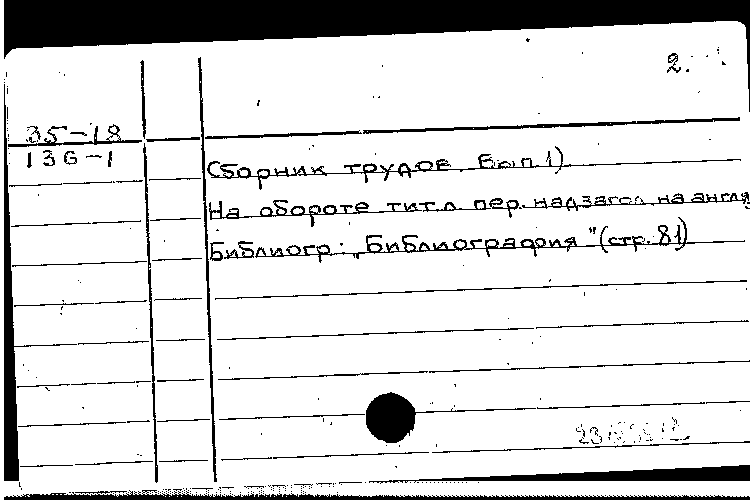 2.
35-18
136-1
Сборник трудов. Вып. 1)
На обороте тит. л. пер. надзагол. на англ. я
Библиогр: „Библиография" (стр. 81)